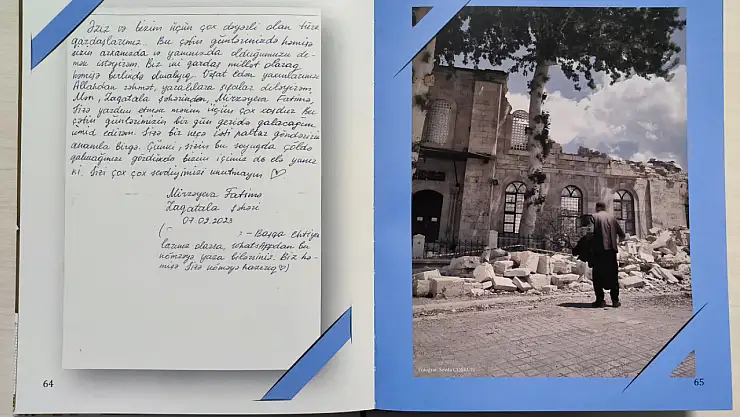 Əziz və bizim üçün çox dəyərli olan türk
qardaşlarımız. Bu çətin günlərinizdə həmişə
sizin arxanızda və yanınızda olduğumuzu de-
mək istəyirəm. Biz iki qardaş millət olaraq
həmişə birlikdə olmalıyıq. Vəfat edən yaxınlarınıza
Allahdan rəhmət, yaralılara şəfalar diləyirəm.
Mən, Zaqatala şəhərindən, Mirzəyeva Fatimə,
Sizə yardım etmək mənim üçün çox xoşdur. Bu
çətin günlərimizin bir gün geridə qalacağını
ümid edirəm. Sizə bir neçə isti paltar göndərirəm
anamla birgə. Çünki, sizin bu soyuqda çöldə
qalmağınızı gördükdə bizim içimiz də elə yanır
ki. Sizi çox çox sevdiyimizi unutmayın ♡
Mirzəyeva Fatimə
Zaqatala şəhəri
07.02.2023
( - Başqa ehtiya
larınız olarsa, WhatsAppdan bu
nömrəyə yaza bilərsiniz. Biz hə-
mişə Sizə köməyə hazırıq ♡)
64
Fotoğraf: Sevda COŞKUN
65